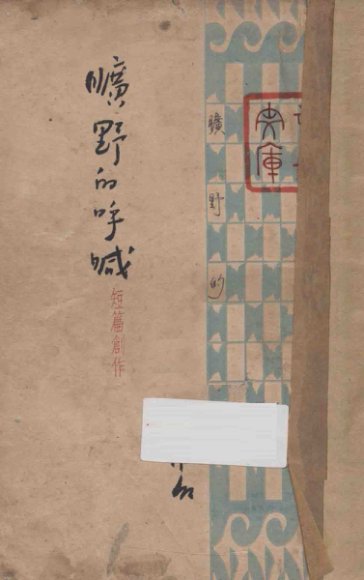 曠野的呼喊
短篇創作
曠野的
庫